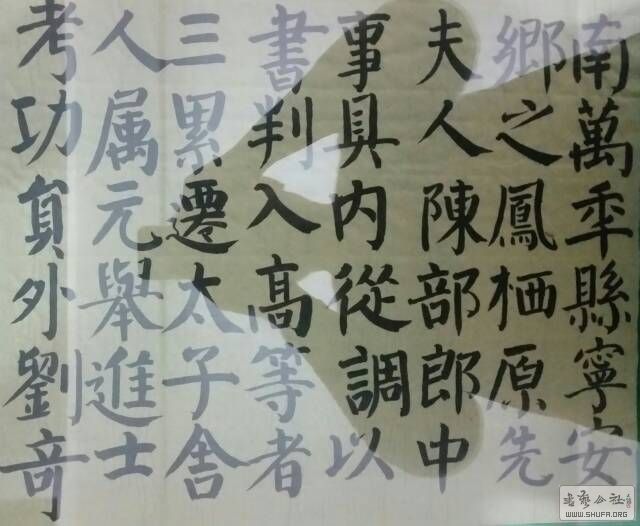 南萬年縣寧安
鄉之鳳栖原先
夫人陳部郎中
事具内從調以
書判入高等者
三累遷太子舍
人属元舉進士
考功員外劉奇
书艺公社
WWW.SHUFA.ORG